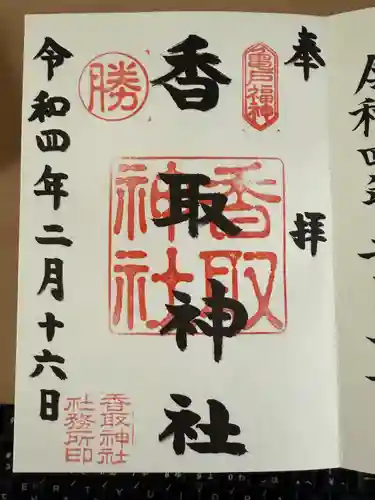 奉拝
亀戸福神
香取神社
香取神社
勝
令和四年二月十六日
香取神社
社務所印
令和四年二